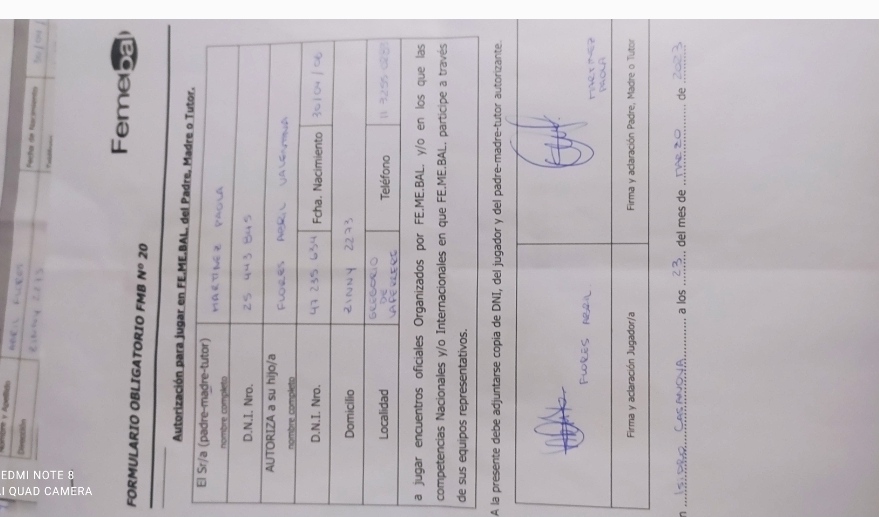 Nombre y Apellido
ABRIL FLORES
Fecha de Nacimiento
30/04/
Dirección
ZINNY 2273
Femebal
FORMULARIO OBLIGATORIO FMB Nº 20
Autorización para jugar en FE.ME.BAL. del Padre, Madre o Tutor.
El Sr/a (padre-madre-tutor)
nombre completo
MARTINEZ PAOLA
D.N.I. Nro.
25 443 845
AUTORIZA a su hijo/a
nombre completo
FLORES ABRIL VALENTINA
D.N.I. Nro.
47 235 634
Fcha. Nacimiento
30/04/06
Domicilio
ZINNY 2273
Localidad
GREGORIO DE LAFERRERE
Teléfono
a jugar encuentros oficiales Organizados por FE.ME.BAL. y/o en los que las
competencias Nacionales y/o Internacionales en que FE.ME.BAL. participe a través
de sus equipos representativos.
A la presente debe adjuntarse copia de DNI, del jugador y del padre-madre-tutor autorizante.
FLORES ABRIL
MARTINEZ
PAOLA
Firma y aclaración Jugador/a
Firma y aclaración Padre, Madre o Tutor
n ISIDRO CASANOVA a los 23 del mes de MARZO de 2023
EDMI NOTE 8
I QUAD CAMERA